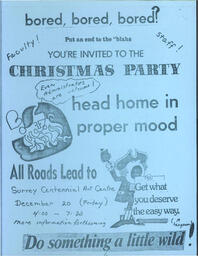 bored, bored, bored?
Faculty!
Put an end to the "blahs
Staff!
YOU'RE INVITED TO THE
CHRISTMAS PARTY
Even Administrators are welcome!
head home in
proper mood
All Roads Lead to
Surrey Centennial Art Centre
December 20 (Friday)
4:00 - 7:30
more information forthcoming
Get what
you deserve
the easy way.
Do something a little wild!